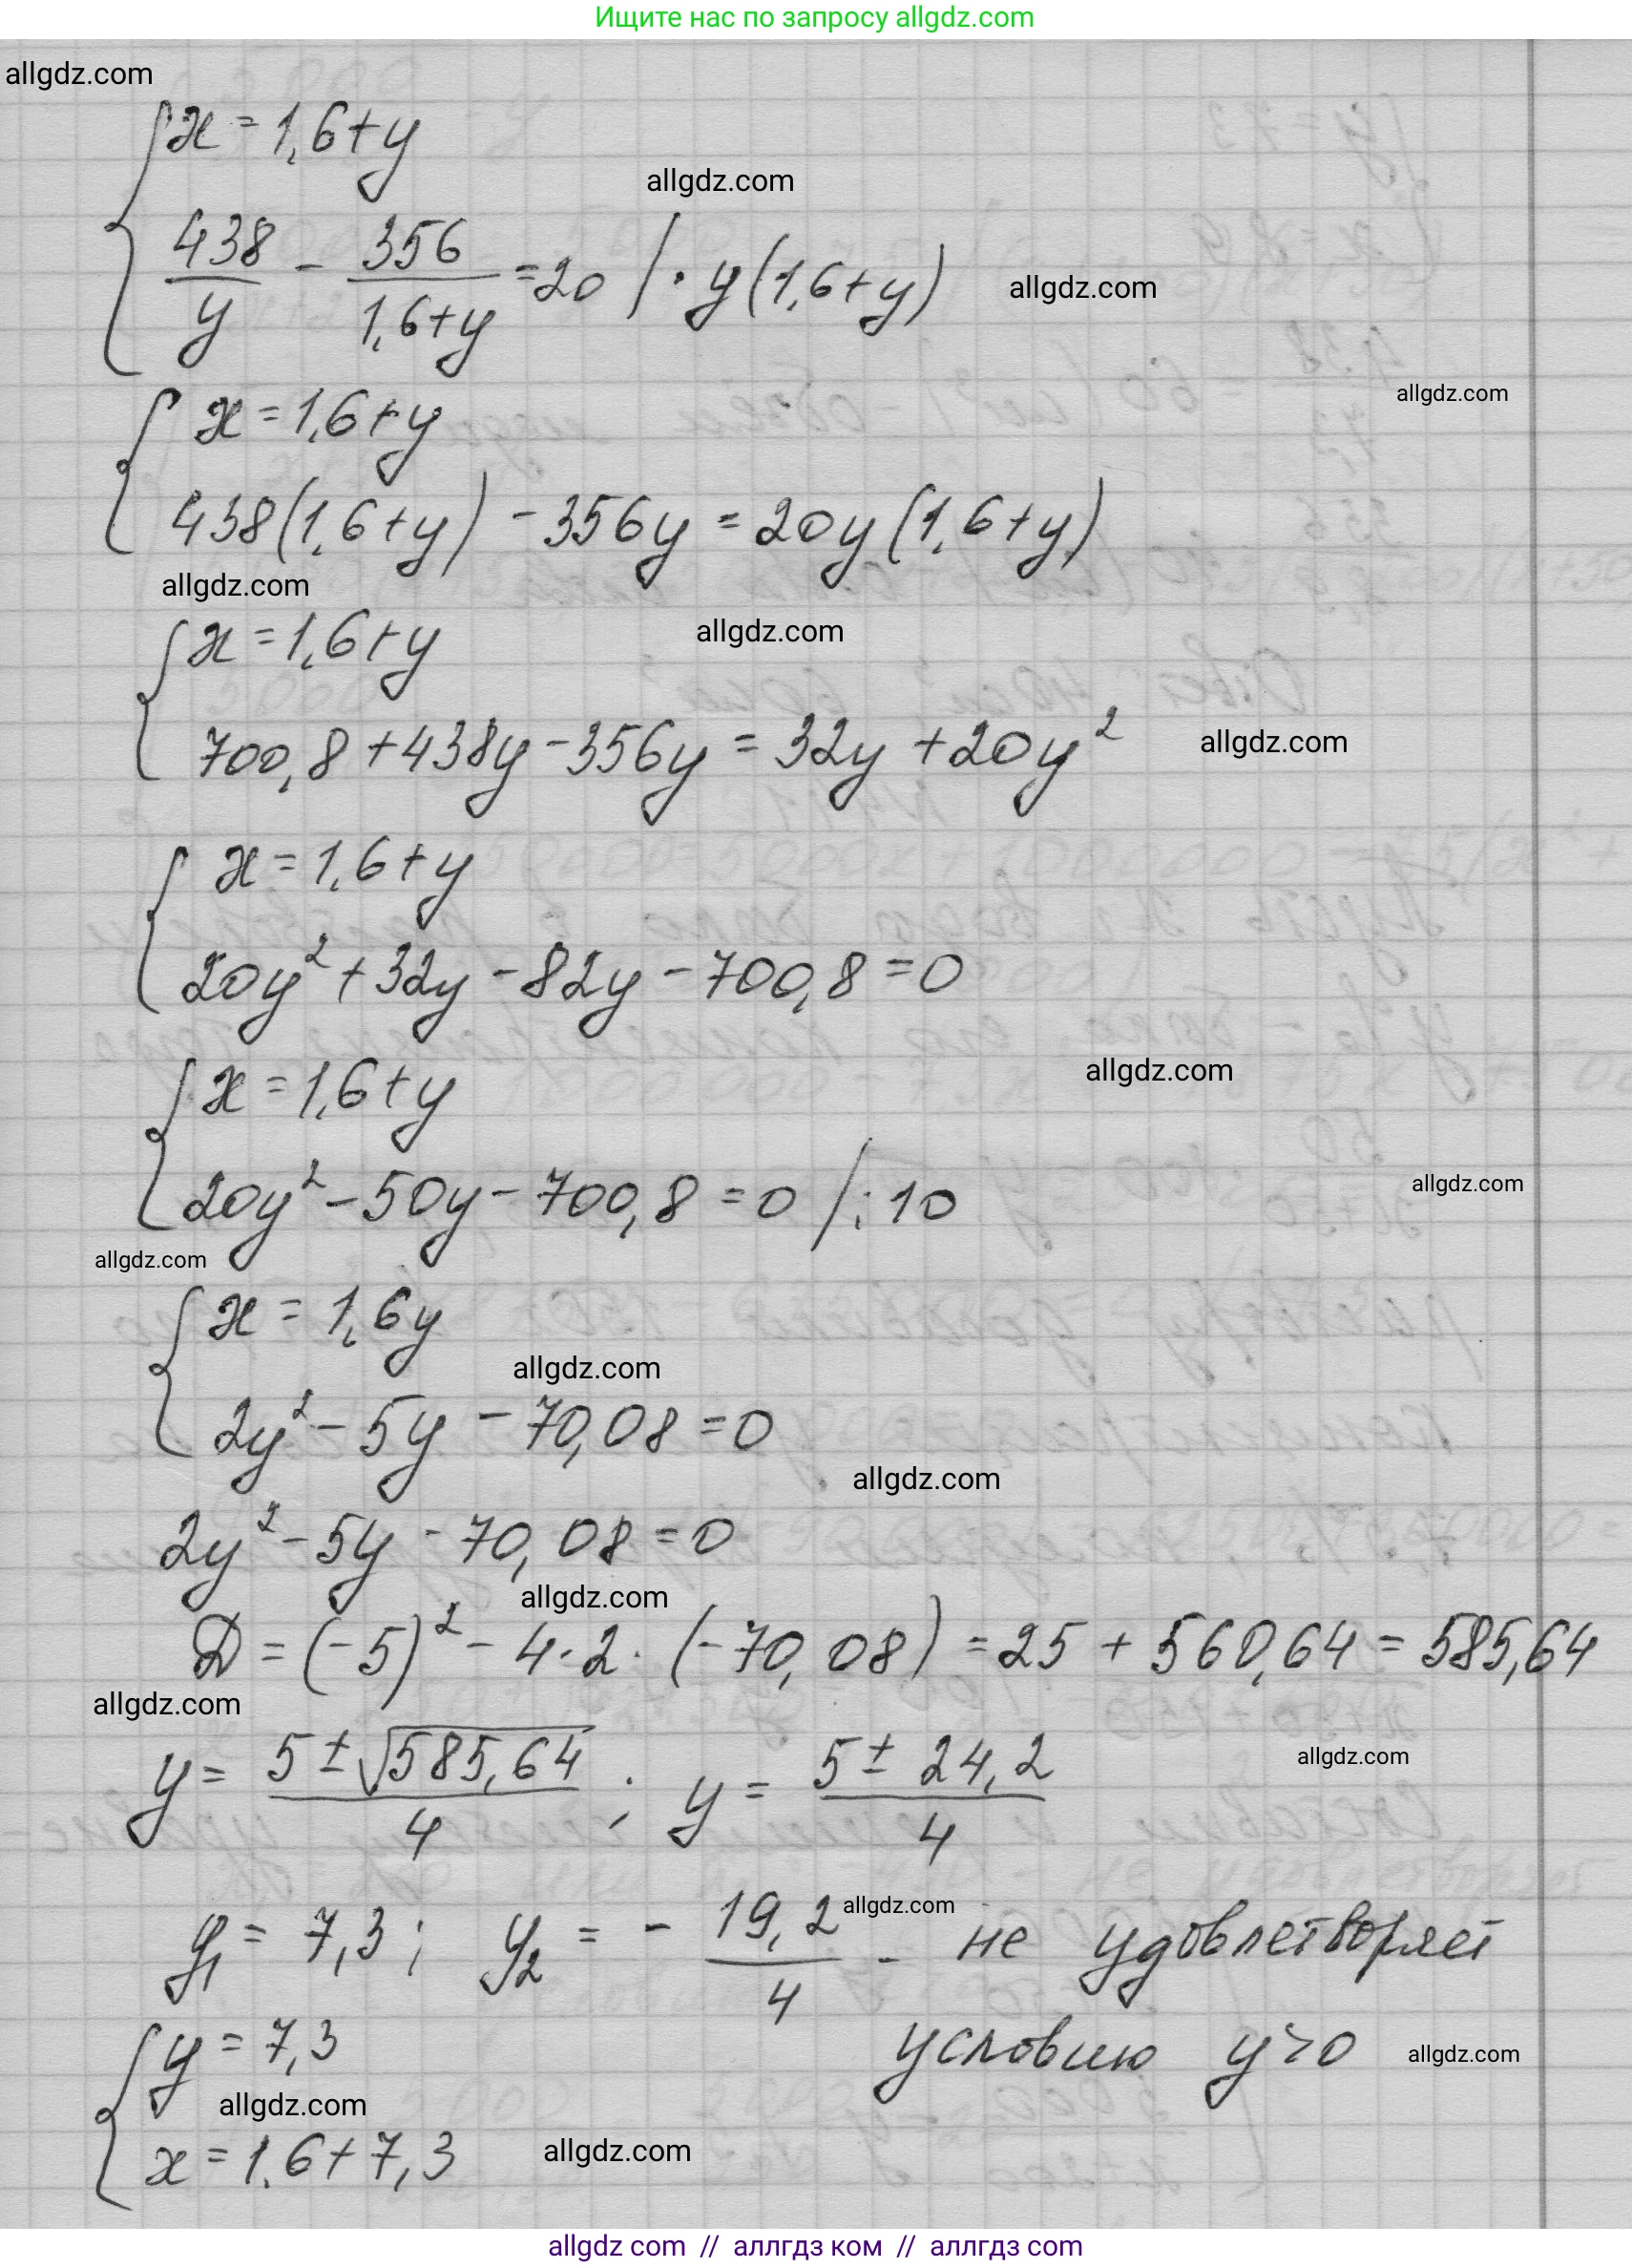 Ищите нас по запросу allgdz.com
allgdz.com
x = 1,6+y
allgdz.com
438/y - 356/(1,6+y) = 20 | · y(1,6+y)
allgdz.com
allgdz.com
x = 1,6+y
438(1,6+y) - 356y = 20y(1,6+y)
allgdz.com
x = 1,6+y
allgdz.com
700,8 + 438y - 356y = 32y + 20y²
allgdz.com
x = 1,6+y
20y² + 32y - 82y - 700,8 = 0
x = 1,6+y
allgdz.com
20y² - 50y - 700,8 = 0 | : 10
allgdz.com
allgdz.com
x = 1,6y
allgdz.com
2y² - 5y - 70,08 = 0
allgdz.com
2y² - 5y - 70,08 = 0
allgdz.com
D = (-5)² - 4·2·(-70,08) = 25 + 560,64 = 585,64
allgdz.com
y = (5 ± √585,64)/4 ; y = (5 ± 24,2)/4
allgdz.com
allgdz.com
y₁ = 7,3; y₂ = - 19,2/4 - не удовлетворяет
условию y>0
y = 7,3
allgdz.com
allgdz.com
x = 1,6 + 7,3
allgdz.com
allgdz com // аллгдз ком // allgdz com